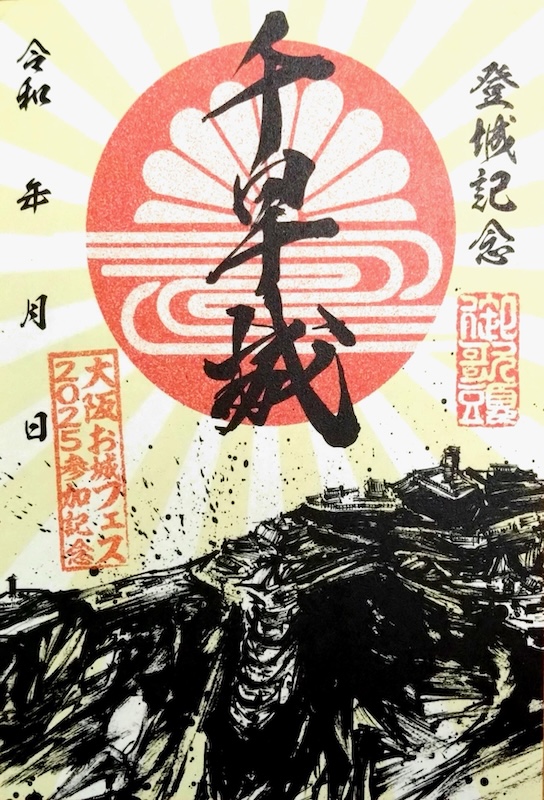 登城記念
御歌頭
千早城
令和 年 月 日
大阪お城フェス
2025参加記念